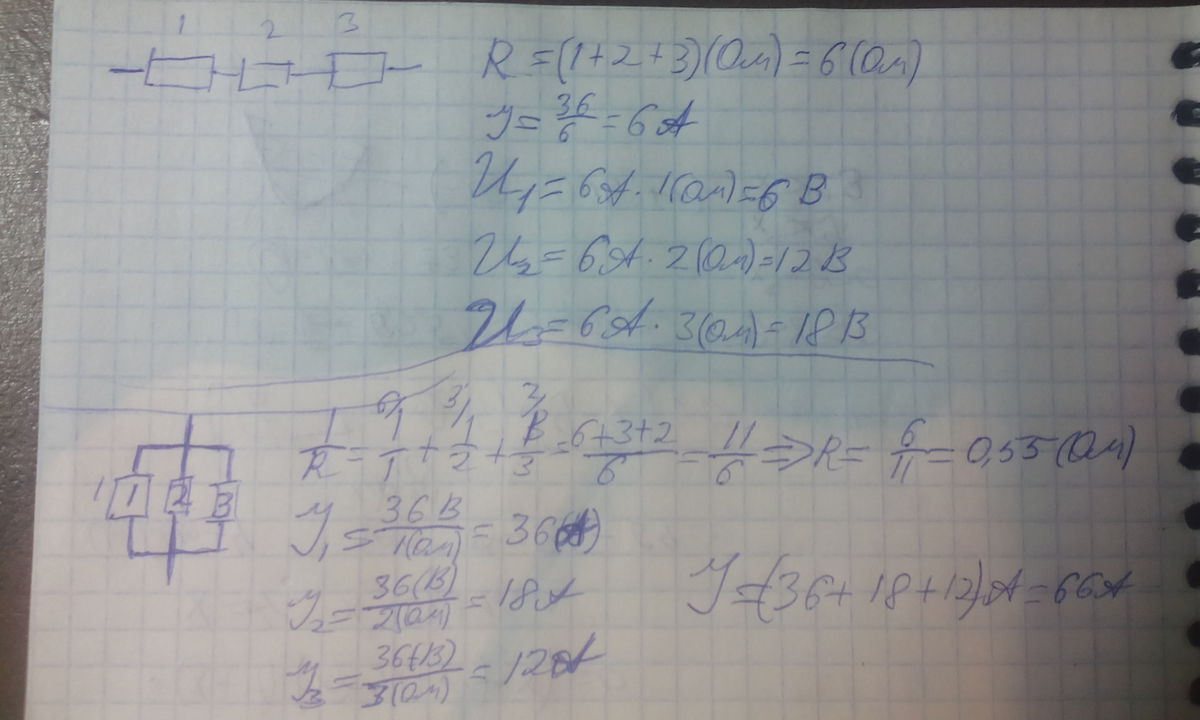 1 2 3
R = (1+2+3)(Ом) = 6(Ом)
У = 36/6 = 6А
U₁ = 6А · 1(Ом) = 6 В
U₂ = 6А · 2(Ом) = 12В
U₃ = 6А · 3(Ом) = 18В
1/R = 1/1 + 1/2 + 1/3 = 6+3+2/6 = 11/6 ⇒ R = 6/11 = 0,55(Ом)
1 1 2 3
У₁ = 36 В/1(Ом) = 36(А)
У₂ = 36(В)/2(Ом) = 18А
У = (36 + 18 + 12)А = 66А
У₃ = 36(В)/3(Ом) = 12А